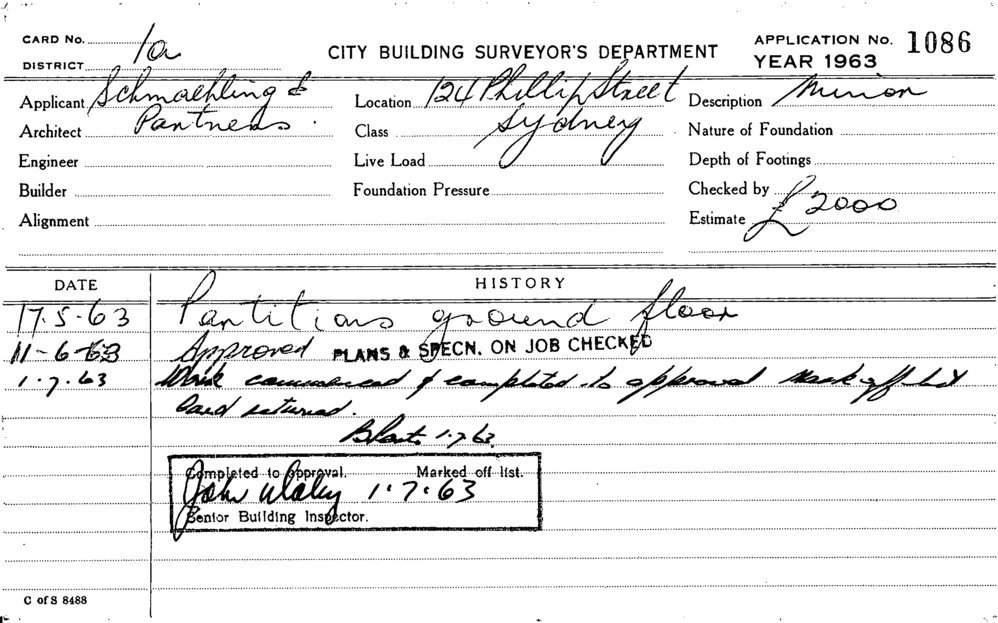 CARD No. 1a
DISTRICT
CITY BUILDING SURVEYOR'S DEPARTMENT
APPLICATION No. 1086
YEAR 1963
Applicant Schmaehling & Location 124 Phillip Street Description Minor
Architect Partners. Class Sydney Nature of Foundation
Engineer Live Load Depth of Footings
Builder Foundation Pressure Checked by
Alignment Estimate £2000
DATE HISTORY
17.5.63 Partitions ground floor
11-6-63 Approved PLANS & SPECN. ON JOB CHECKED
1.7.63 Work commenced & completed to approval Mark off list
Card returned.
1.7.63.
Completed to approval. Marked off list.
John 1.7.63
Senior Building Inspector.
C of S 8488